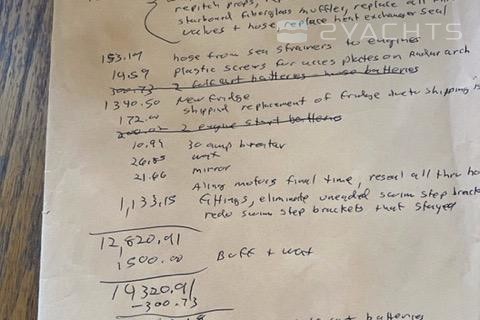 repitch props, replace all
starboard fiberglass muffler, replace all
valves + hose, replace heat exchanger seal
2YACHTS
153.19 hose from sea strainers to engines
19.59 plastic screws for access plates on radar arch
300.73 2 batteries - house batteries
1340.50 New fridge
172.00 shipping replacement of fridge due to shipping
200.02 2 engine start batteries
10.99 30 amp breaker
26.85 wax
21.66 mirror
Align motors final time, reseal all thru
1,133.15 fittings, eliminate uneeded swim step
redo swim step brackets that stayed
12,820.91
1,500.00 Buff + wax
14320.91
-300.73
batteries